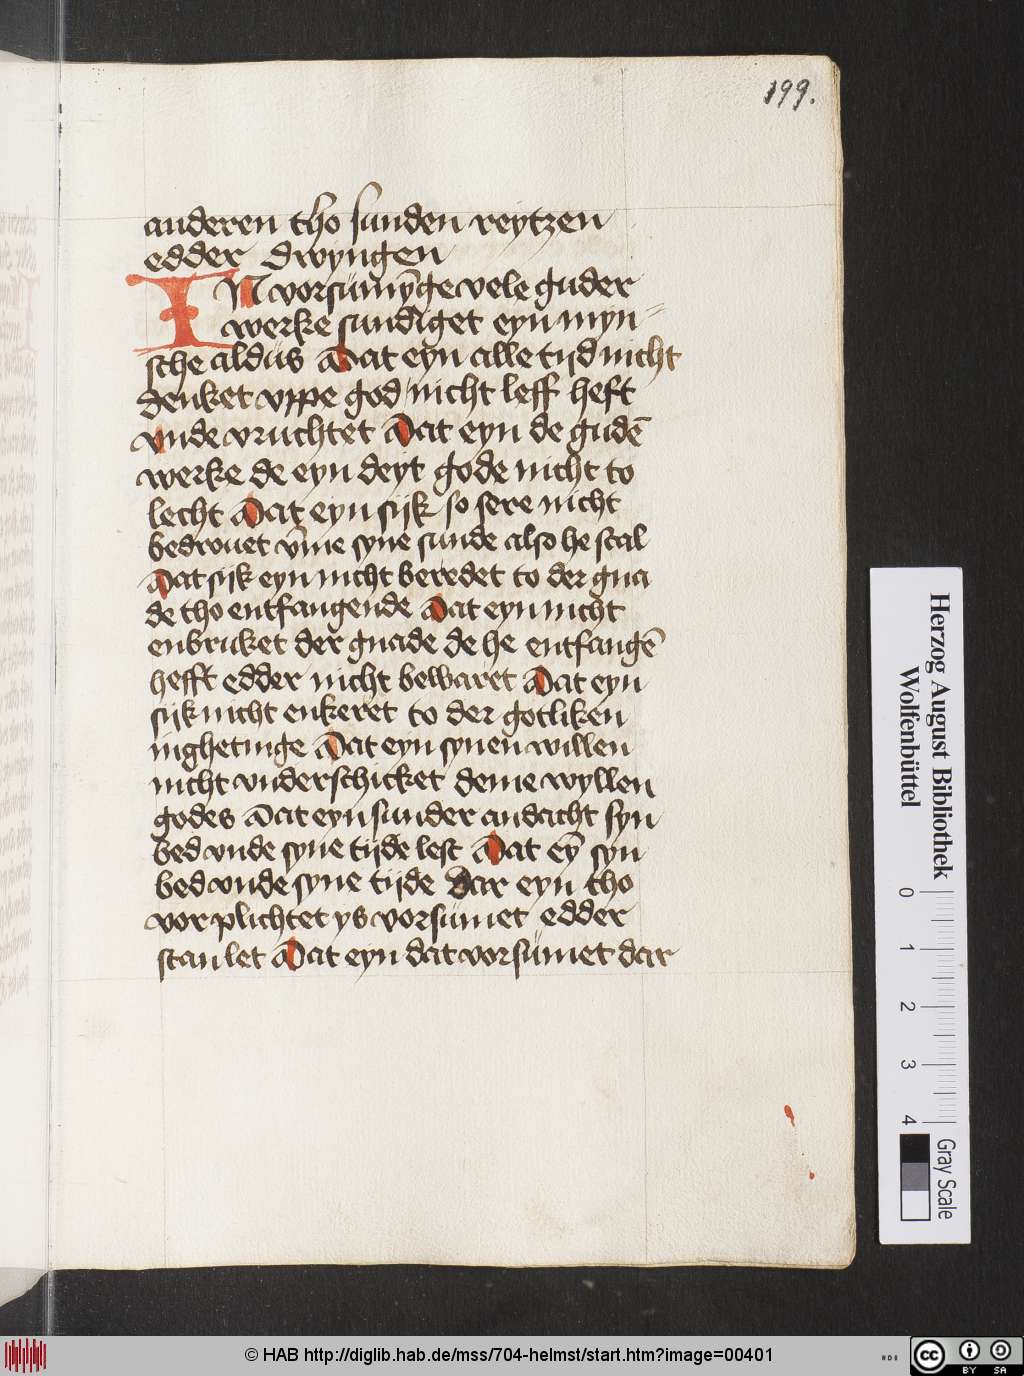 199.
anderen tho sunden reytzen
edder dwyngen
IN vorsümyge vele guder
werke sundiget eyn myn-
sche aldus Dat eyn alle tijd nicht
denket vppe god nicht leff heft
vnde vruchtet Dat eyn de gudē
werke de eyn deyt gode nicht to
lecht Dat eyn sijk so sere nicht
bedrouet vm̄e syne sunde also he scal
Dat sijk eyn nicht beredet to der gna
de tho entfangende Dat eyn nicht
enbruket der gnade de he entfangē
hefft edder nicht bewaret Dat eyn
sijk nicht enkeret to der gotliken
nighetinge Dat eyn synen willen
nicht vnderschicket deme wyllen
godes Dat eyn sunder andacht syn
bed vnde syne tijde lest Dat eȳ syn
bed vnde syne tijde Dar eyn tho
vorplichtet ys vorsümet edder
stan let Dat eyn dat vorsümet dar
Herzog August Bibliothek
Wolfenbüttel
0 1 2 3 4
Gray Scale
© HAB http://diglib.hab.de/mss/704-helmst/start.htm?image=00401
HAB
cc BY SA